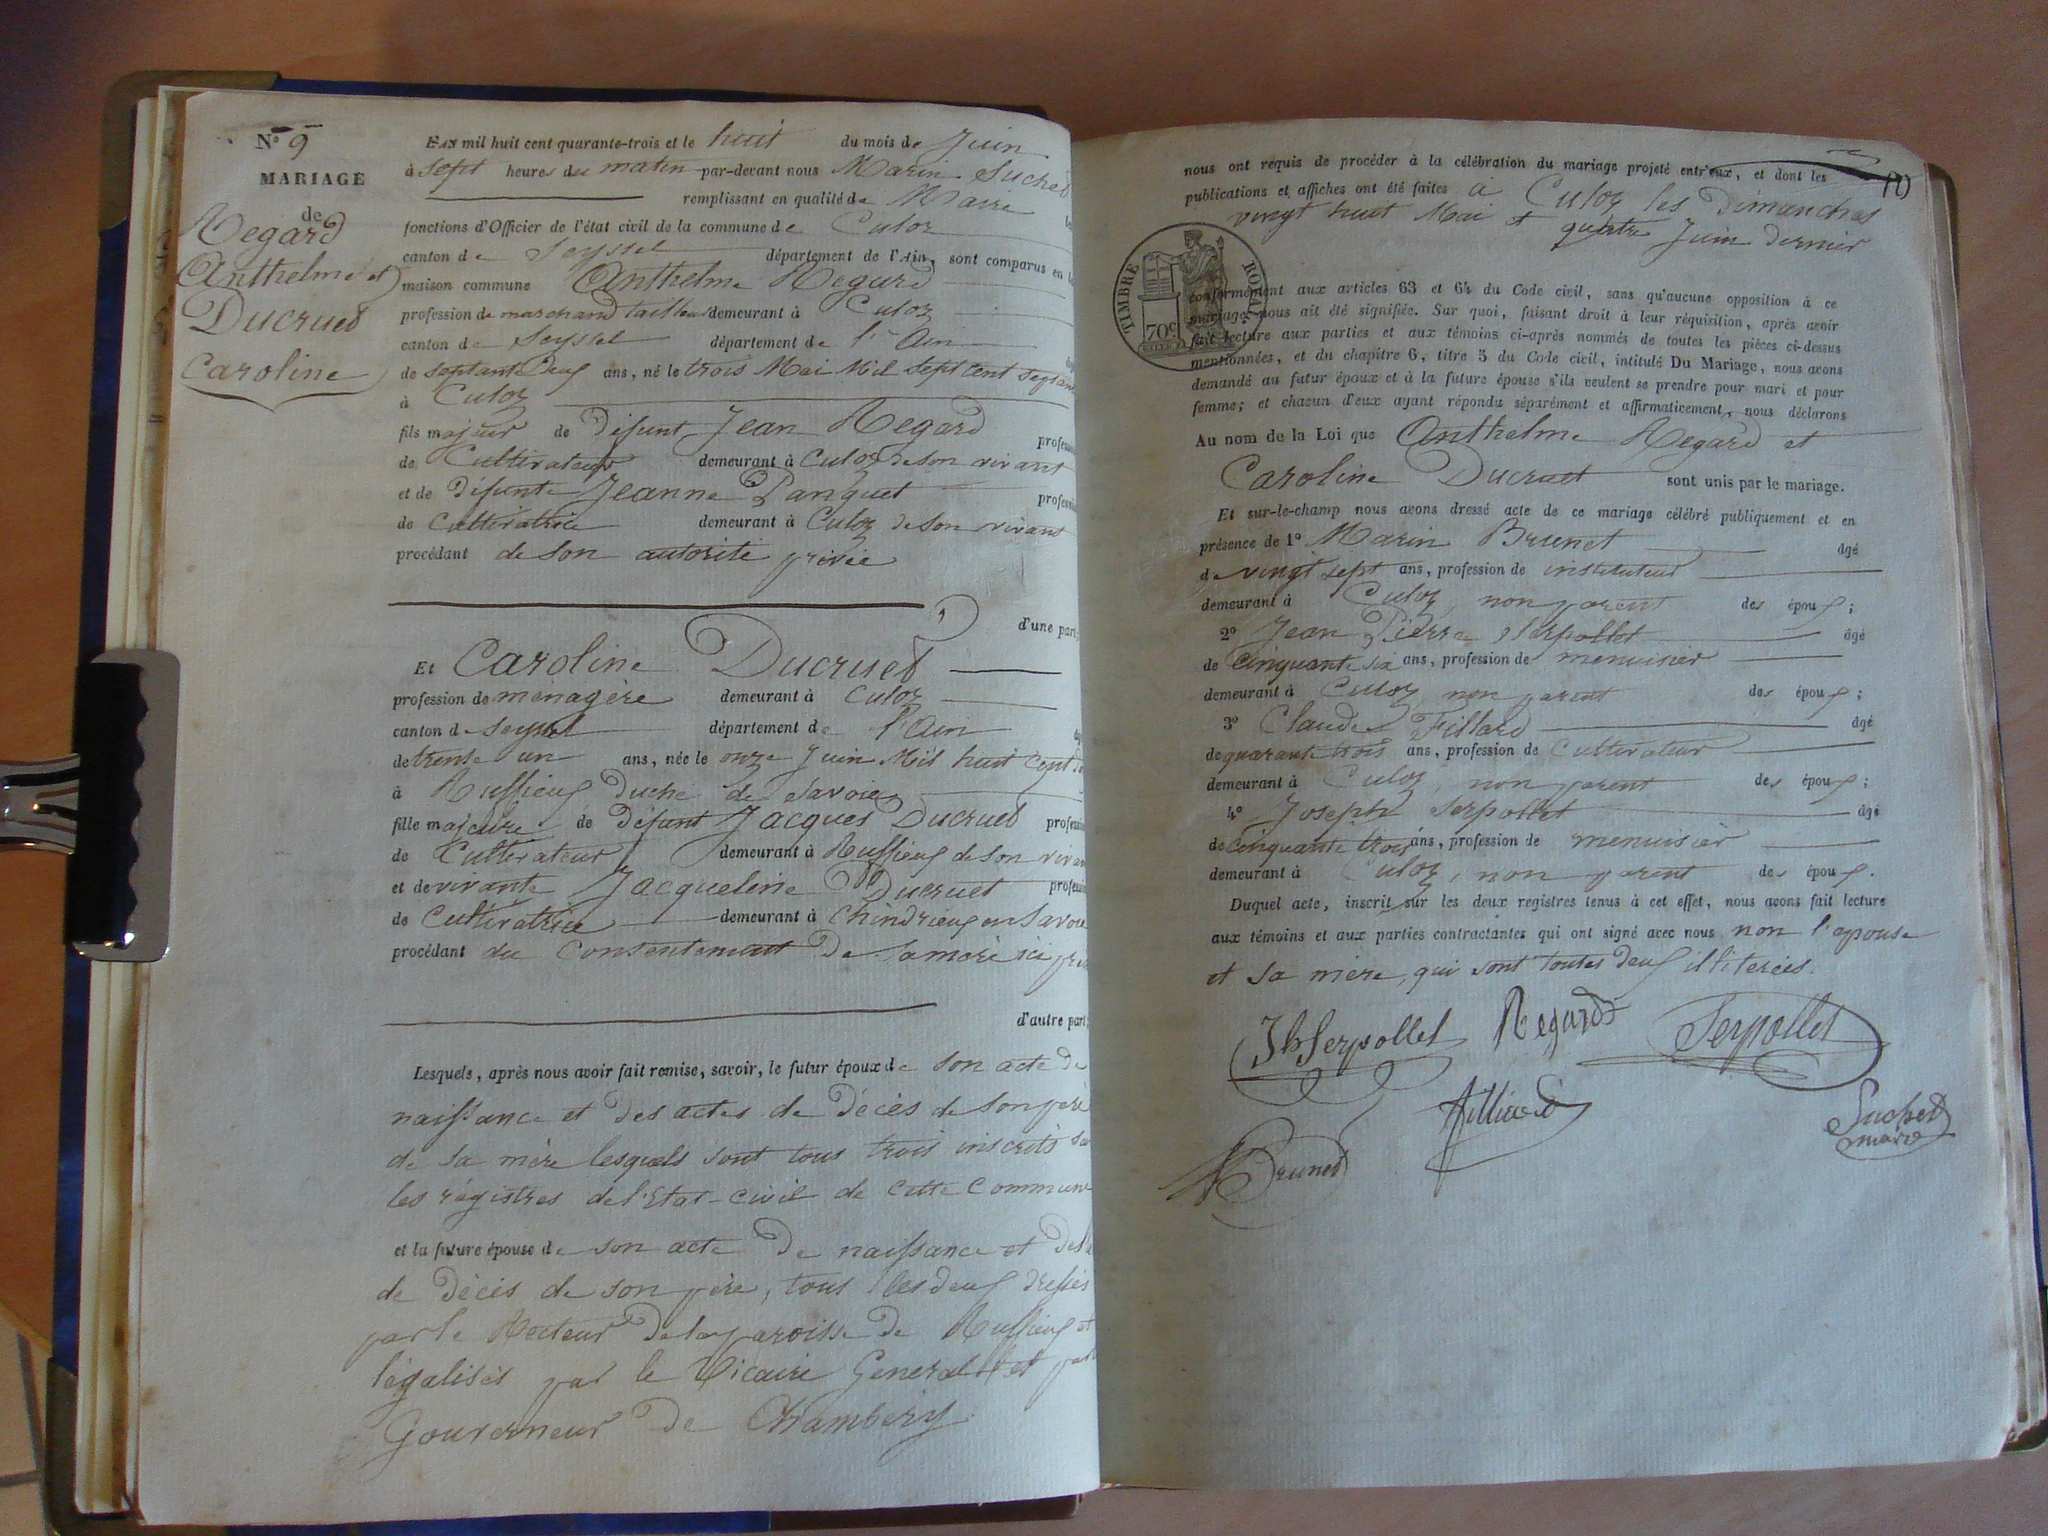 N° 9
MARIAGE
de
Regard
Anthelme et
Ducruet
Caroline
L'AN mil huit cent quarante-trois et le huit du mois de Juin
à sept heures du matin par-devant nous Marin Suchet
remplissant en qualité de Maire les
fonctions d'Officier de l'état civil de la commune de Culoz
canton de Seyssel département de l'Ain, sont comparus en la
maison commune Anthelme Regard
profession de marchand tailleur demeurant à Culoz
canton de Seyssel département de l'Ain
de septante deux ans, né le trois Mai Mil sept cent
à Culoz
fils majeur de défunt Jean Regard profession
de Cultivateur demeurant à Culoz de son vivant
et de défunte Jeanne Panquet profession
de Cultivatrice demeurant à Culoz de son vivant
procédant de son autorité privée
d'une part;
Et Caroline Ducruet
profession de ménagère demeurant à Culoz
canton de Seyssel département de l'Ain
de trente un ans, née le onze Juin Mil huit cent
à Ruffieux Duché de Savoie
fille majeure de défunt Jacques Ducruet profession
de Cultivateur demeurant à Ruffieux de son vivant
et de vivante Jacqueline Ducruet profession
de Cultivatrice demeurant à Chindrieux en Savoie
procédant du Consentement de sa mère ici
d'autre part;
Lesquels, après nous avoir fait remise, savoir, le futur époux de son acte de
naissance et des actes de décès de son père
de sa mère lesquels sont tous trois inscrits
les régistres de l'Etat-civil de cette commune
et la future épouse de son acte de naissance et
de décès de son père, tous les deux dressés
par le Recteur de la paroisse de Ruffieux et
légalisés par le Vicaire Général et par
Gouverneur de Chambéry
nous ont requis de procéder à la célébration du mariage projeté entr'eux, et dont les
publications et affiches ont été faites à Culoz les Dimanches
vingt huit Mai et quatre Juin dernier
TIMBRE ROYAL
70c
conformément aux articles 63 et 64 du Code civil, sans qu'aucune opposition à ce
mariage nous ait été signifiée. Sur quoi, faisant droit à leur réquisition, après avoir
fait lecture aux parties et aux témoins ci-après nommés de toutes les pièces ci-dessus
mentionnées, et du chapitre 6, titre 5 du Code civil, intitulé Du Mariage, nous avons
demandé au futur époux et à la future épouse s'ils veulent se prendre pour mari et pour
femme; et chacun d'eux ayant répondu séparément et affirmativement, nous déclarons
Au nom de la Loi que Anthelme Regard et
Caroline Ducruet sont unis par le mariage.
Et sur-le-champ nous avons dressé acte de ce mariage célébré publiquement et en
présence de 1° Marin Brunet âgé
de vingt sept ans, profession de instituteur
demeurant à Culoz, non parent des époux;
2° Jean Pierre Serpollet âgé
de cinquante six ans, profession de menuisier
demeurant à Culoz, non parent des époux;
3° Claude Filliard âgé
de quarante trois ans, profession de Cultivateur
demeurant à Culoz, non parent des époux;
4° Joseph Serpollet âgé
de cinquante trois ans, profession de menuisier
demeurant à Culoz, non parent des époux.
Duquel acte, inscrit sur les deux registres tenus à cet effet, nous avons fait lecture
aux témoins et aux parties contractantes qui ont signé avec nous non l'épouse
et sa mère, qui sont toutes deux illiterées.
Jh Serpollet Regard Serpollet
Filliard
Suchet
maire
Brunet